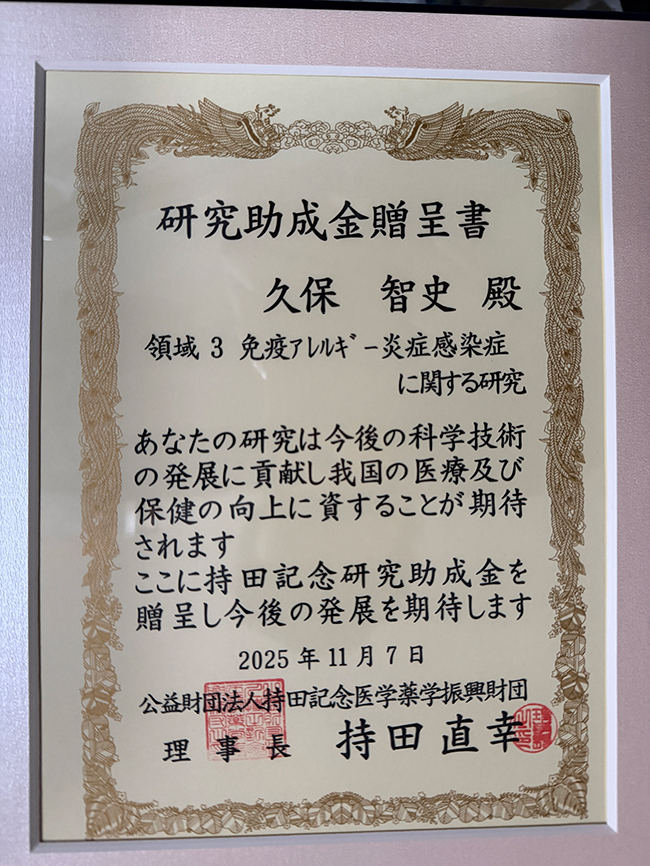 研究助成金贈呈書
久保 智史 殿
領域 3 免疫アレルギー炎症感染症
に関する研究
あなたの研究は今後の科学技術
の発展に貢献し我国の医療及び
保健の向上に資することが期待
されます
ここに持田記念研究助成金を
贈呈し今後の発展を期待します
2025 年 11 月 7 日
公益財団法人持田記念医学薬学振興財団
理 事 長 持田直幸